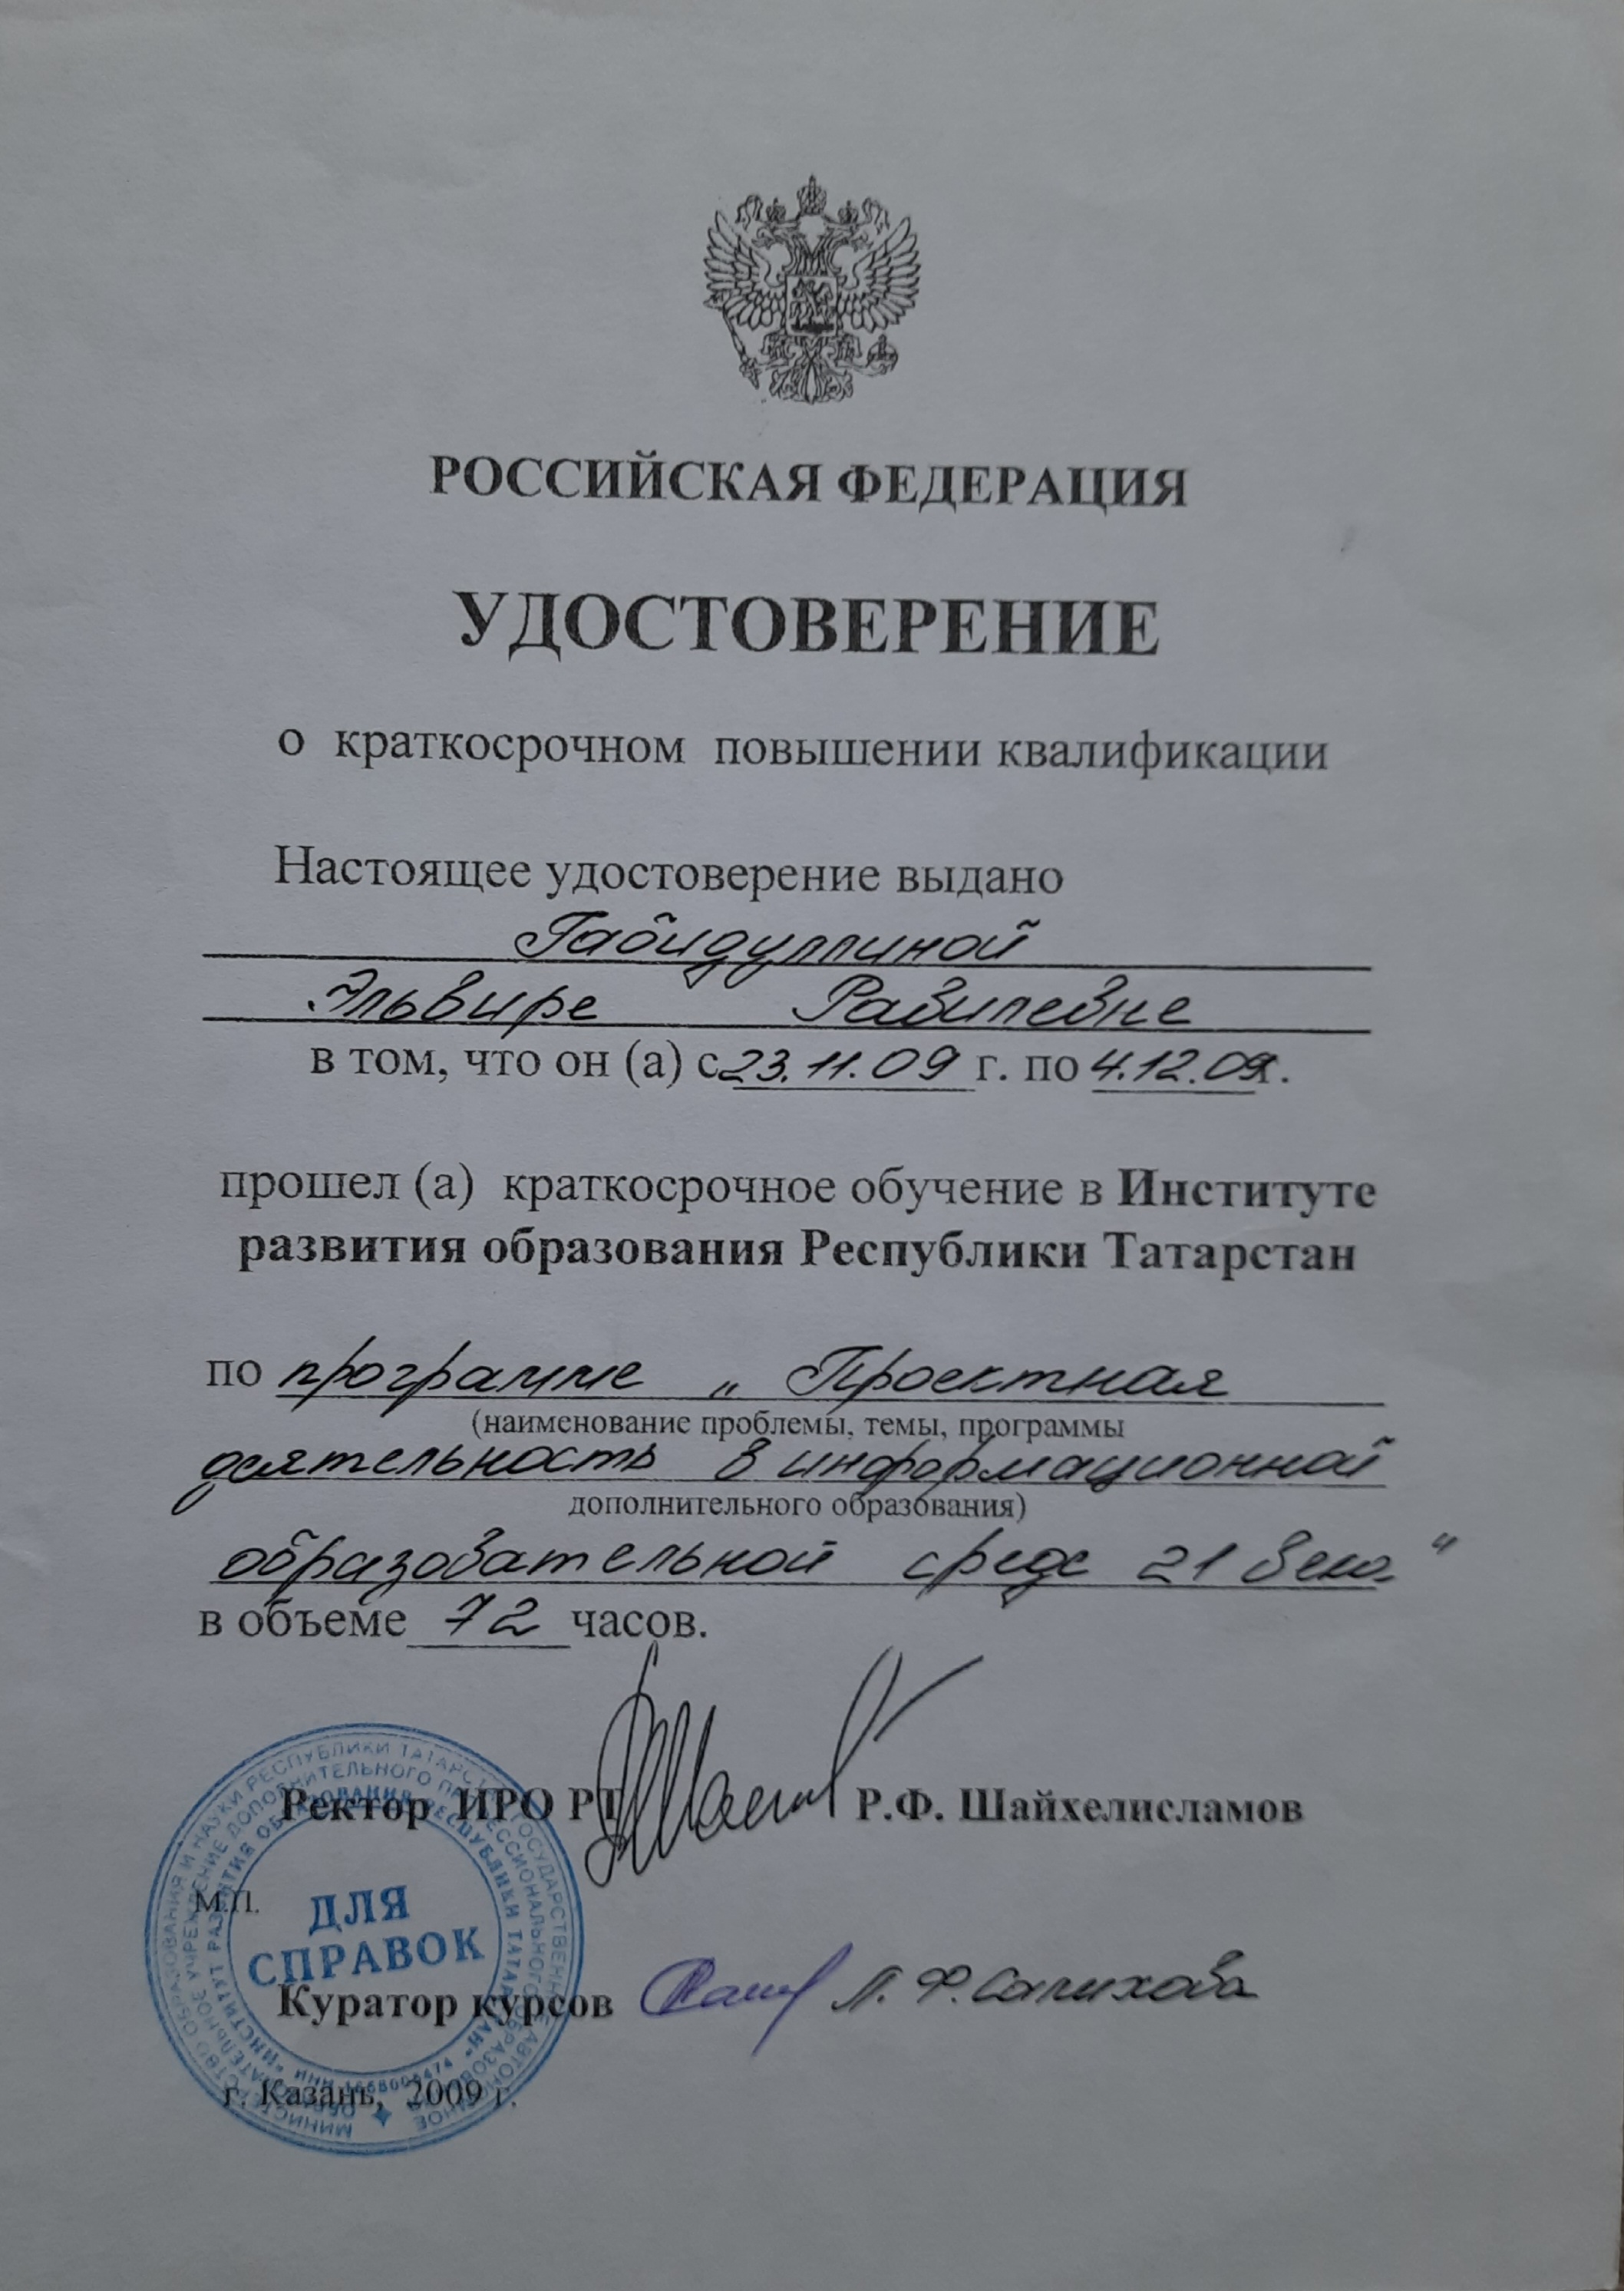 РОССИЙСКАЯ ФЕДЕРАЦИЯ
УДОСТОВЕРЕНИЕ
о краткосрочном повышении квалификации
Настоящее удостоверение выдано
Габидуллиной
Эльвире Равилевне
в том, что он (а) с 23.11.09 г. по 4.12.09 г.
прошел (а) краткосрочное обучение в Институте
развития образования Республики Татарстан
по программе „Проектная
(наименование проблемы, темы, программы
деятельность в информационной
дополнительного образования)
образовательной среде 21 века"
в объеме 72 часов.
Ректор ИРО РТ Р.Ф. Шайхелисламов
М.П.
ДЛЯ
СПРАВОК
Куратор курсов Л.Ф. Салихова
г. Казань, 2009 г.
МИНИСТЕРСТВО ОБРАЗОВАНИЯ И НАУКИ РЕСПУБЛИКИ ТАТАРСТАН
"ИНСТИТУТ РАЗВИТИЯ ОБРАЗОВАНИЯ РЕСПУБЛИКИ ТАТАРСТАН"